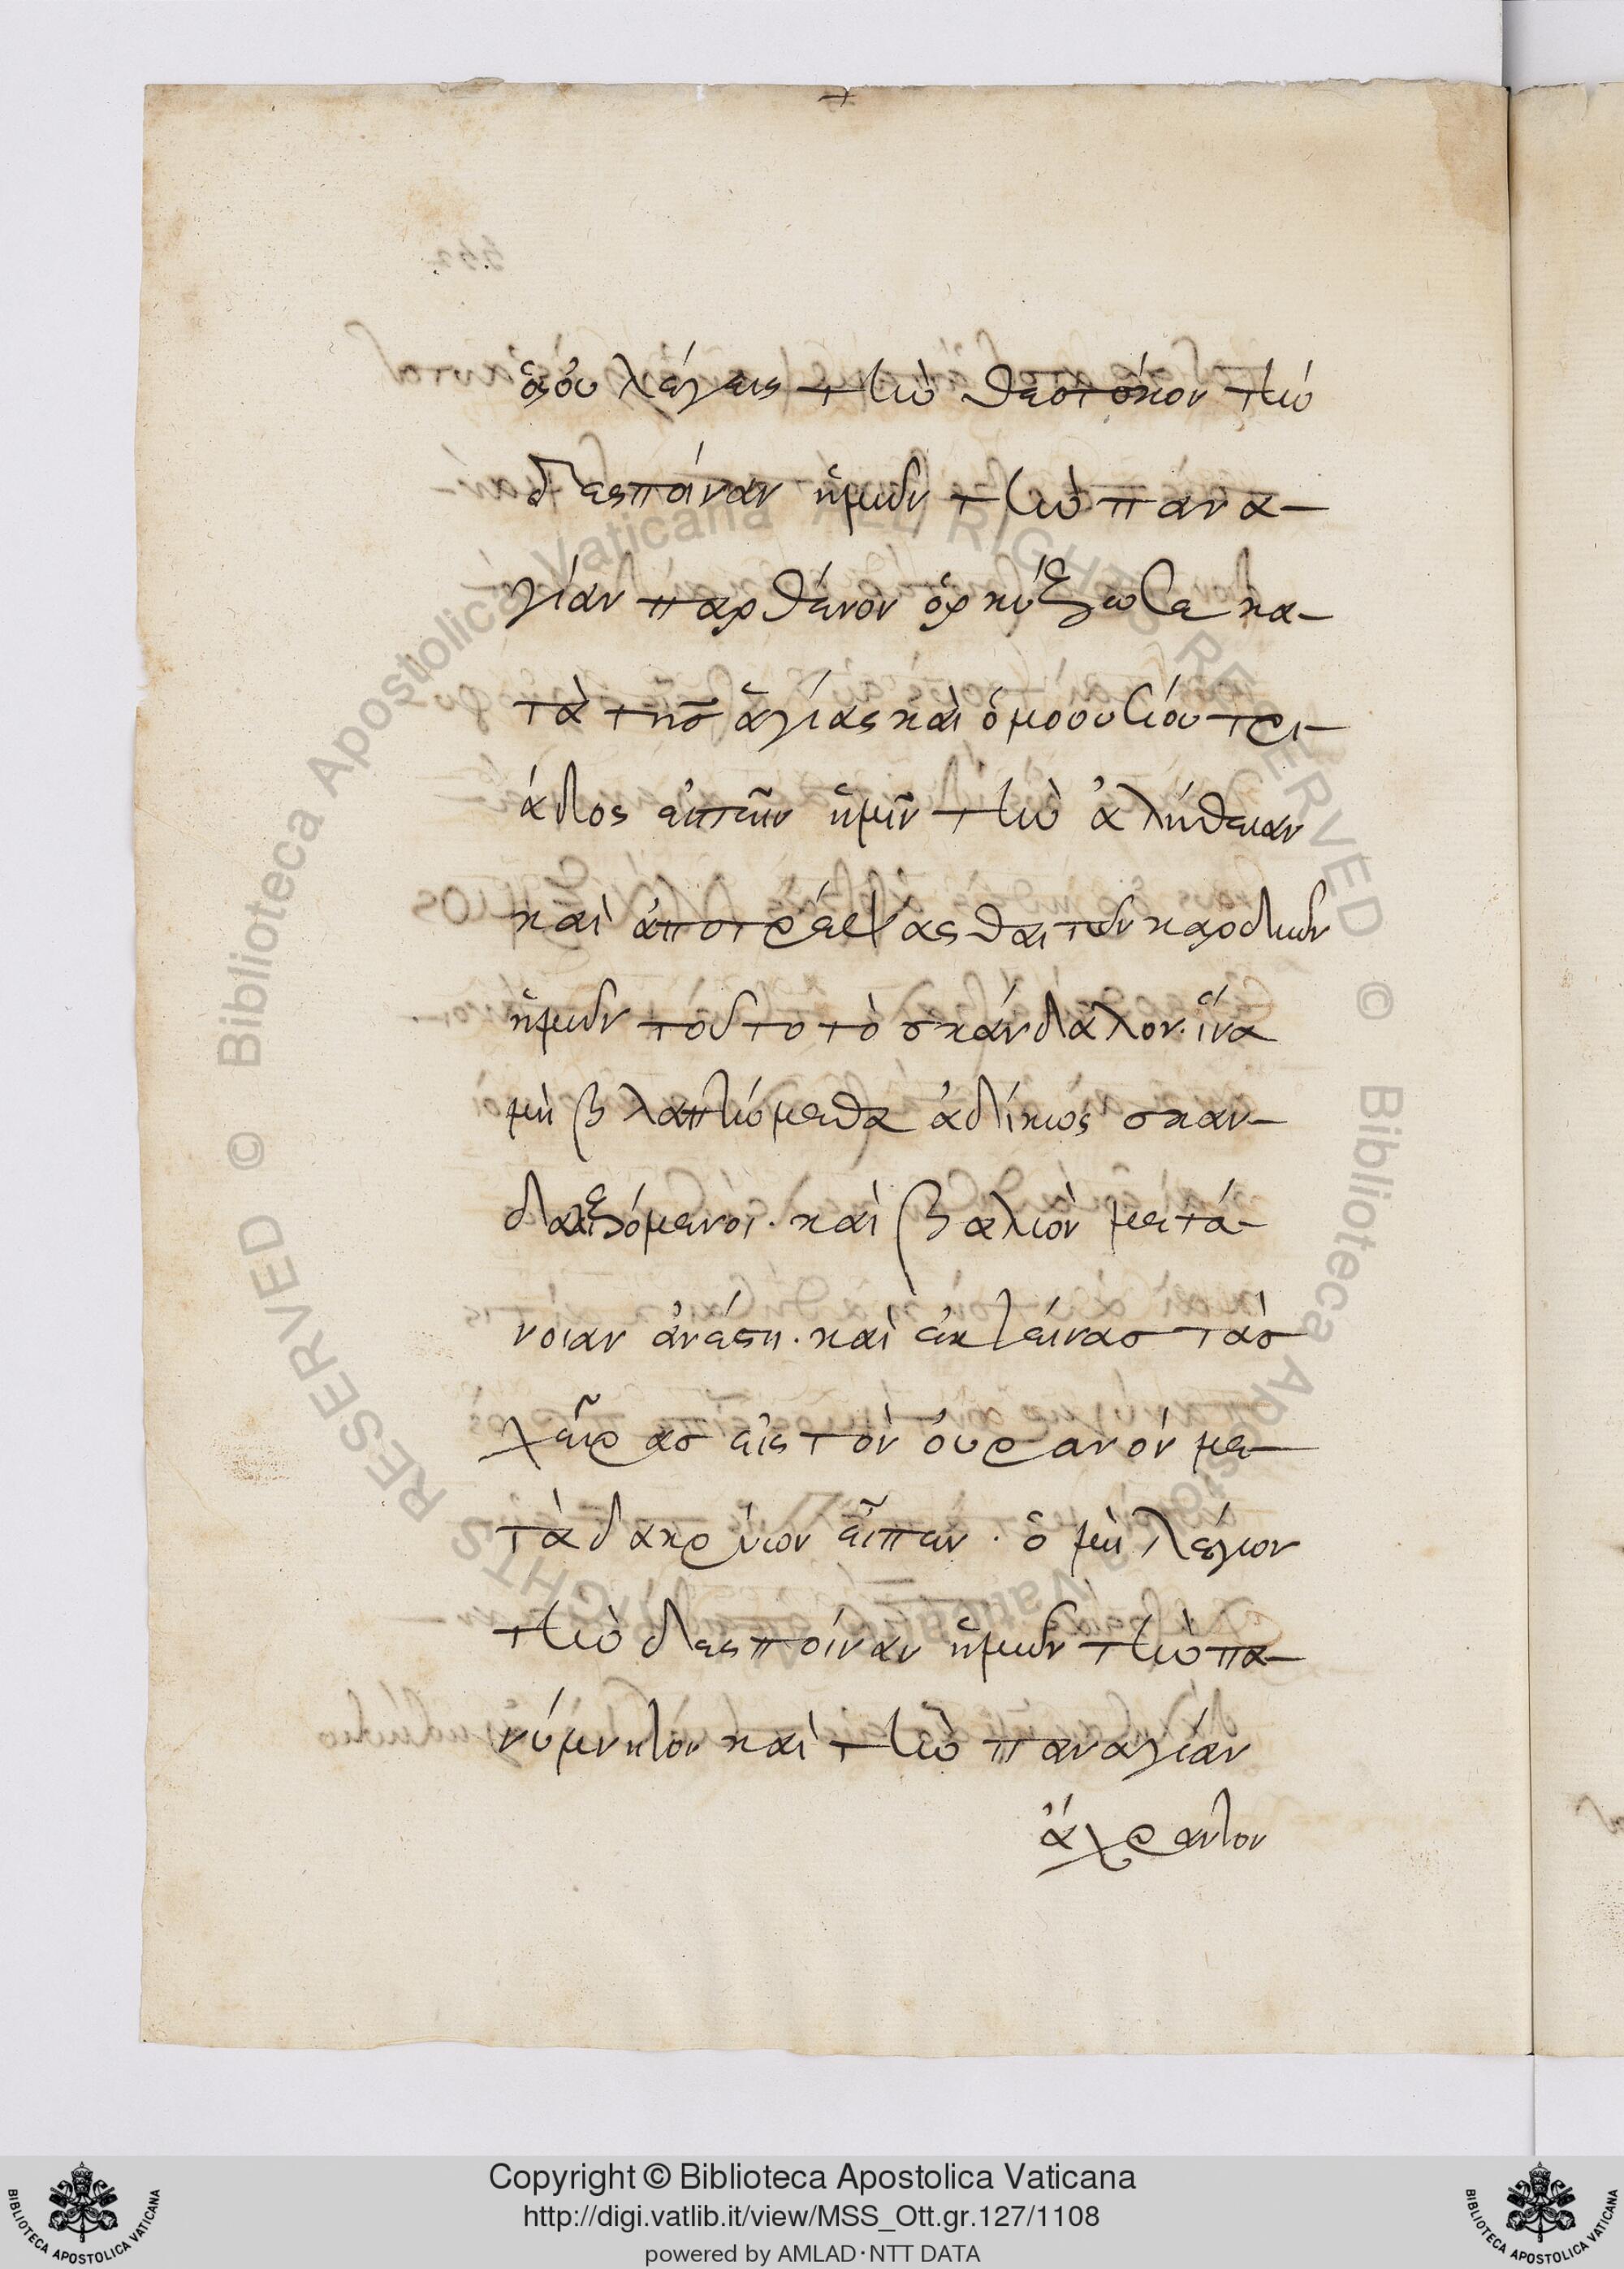 ὃς οὐ λέγεις τὴν θεοτόκον τὴν
δέσποιναν ἡμῶν τὴν πανα-
γίαν παρθένον ὁρκίζω σε κα-
τὰ τῆς ἁγίας καὶ ὁμοουσίου τρι-
άδος εἰπεῖν ἡμῖν τὴν ἀλήθειαν
καὶ ἀποτρέψασθαι τῶν καρδιῶν
ἡμῶν τοῦτο τὸ σκάνδαλον. ἵνα
μὴ βλαπτώμεθα ἀδίκως σκαν-
δαλιζόμενοι. καὶ βαλὼν μετά-
νοιαν ἀνέστη. καὶ ἐκτείνας τὰς
χεῖρας εἰς τὸν οὐρανόν με-
τὰ δακρύων εἶπεν. ὁ μὴ λέγων
τὴν δεσποίναν ἡμῶν τὴν πα-
νύμνητον καὶ τὴν παναγίαν
ἄχραντον
Copyright © Biblioteca Apostolica Vaticana
http://digi.vatlib.it/view/MSS_Ott.gr.127/1108
powered by AMLAD·NTT DATA
BIBLIOTECA APOSTOLICA VATICANA
BIBLIOTECA APOSTOLICA VATICANA
© Biblioteca Apostolica Vaticana ALL RIGHTS RESERVED
© Biblioteca Apostolica Vaticana ALL RIGHTS RESERVED